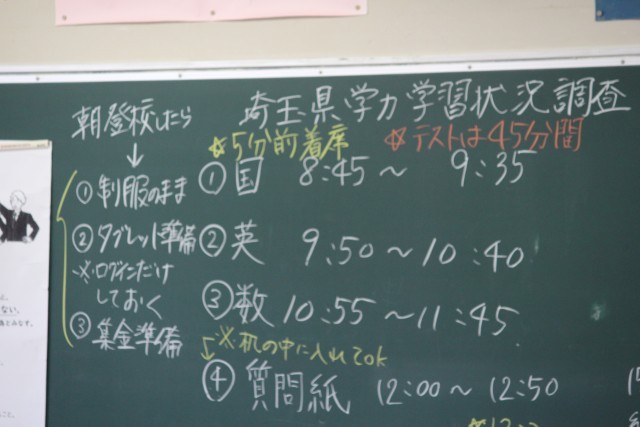 埼玉県学力学習状況調査
朝登校したら
↓
①制服のまま
②タブレット準備
※ログインだけ
しておく
③集金準備
☆5分前着席
☆テストは45分間
①国 8:45～9:35
②英 9:50～10:40
③数 10:55～11:45
※机の中に入れてok
④質問紙 12:00～12:50